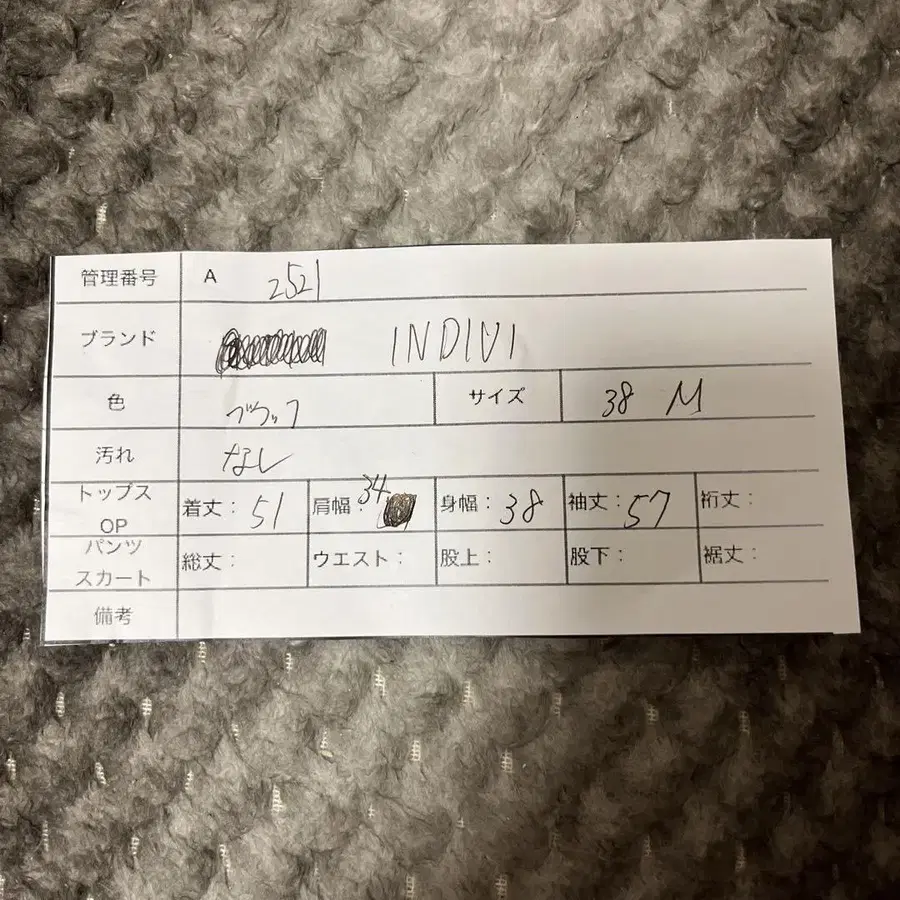 管理番号 A 2521
ブランド INDIVI
色 ブラック サイズ 38 M
汚れ なし
トップス OP 着丈: 51 肩幅: 34 身幅: 38 袖丈: 57 裄丈:
パンツ スカート 総丈: ウエスト: 股上: 股下: 裾丈:
備考